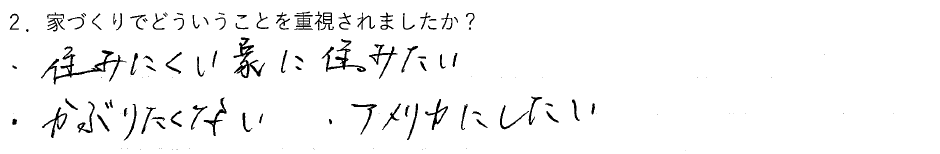 2．家づくりでどういうことを重視されましたか？
・住みにくい家に住みたい
・かぶりたくない　・アメリカにしたい